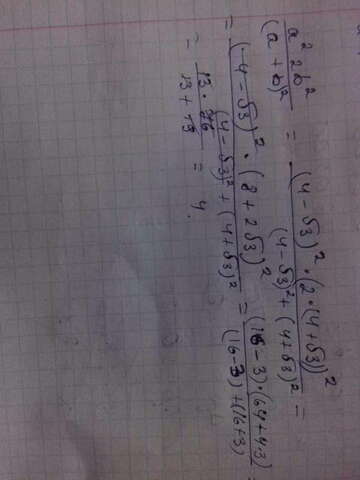 a² 2b² / (a + b)² = (4 - √3)² · (2 · (4 + √3))² / (4 - √3)² + (4 + √3)² =
= (4 - √3)² · (8 + 2√3)² / (4 - √3)² + (4 + √3)² = (16 - 3) · (64 + 4·3) / (16 - 3) + (16 + 3) =
= 13 · 76 / 13 + 19 = 4